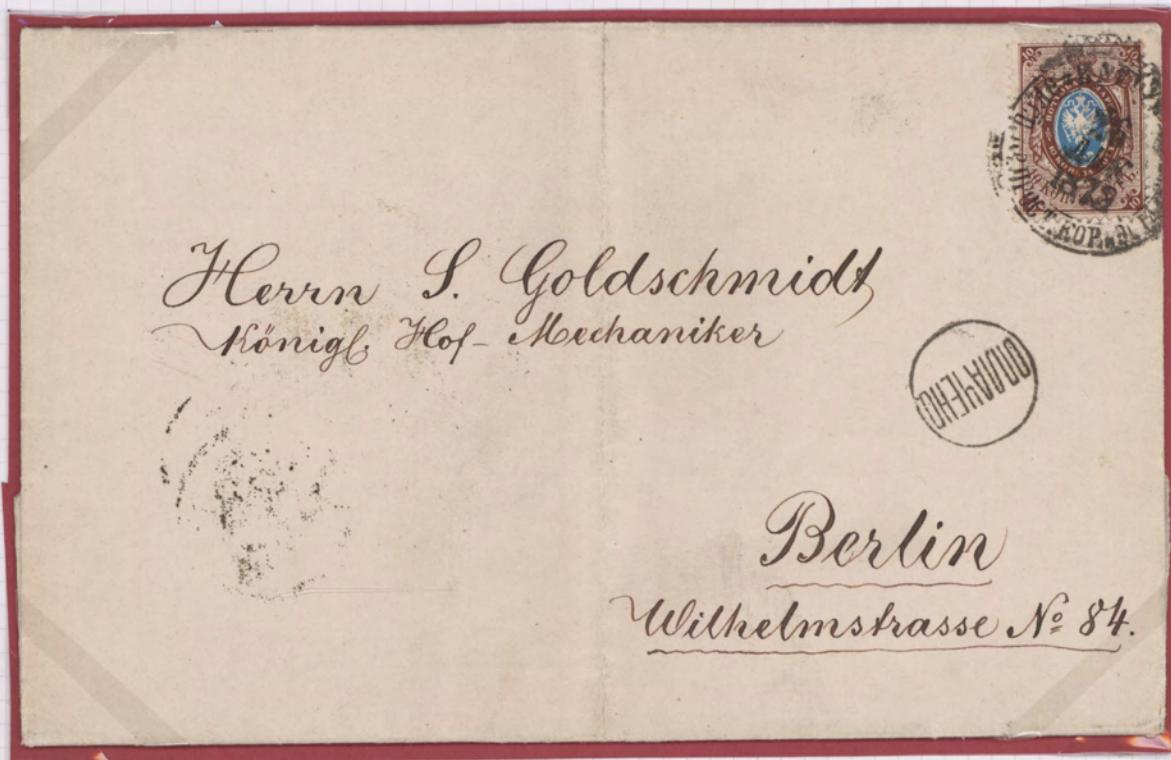 Herrn S. Goldschmidt
Königl. Hof-Mechaniker
ОПЛАЧЕНО
Berlin
Wilhelmstrasse № 84.